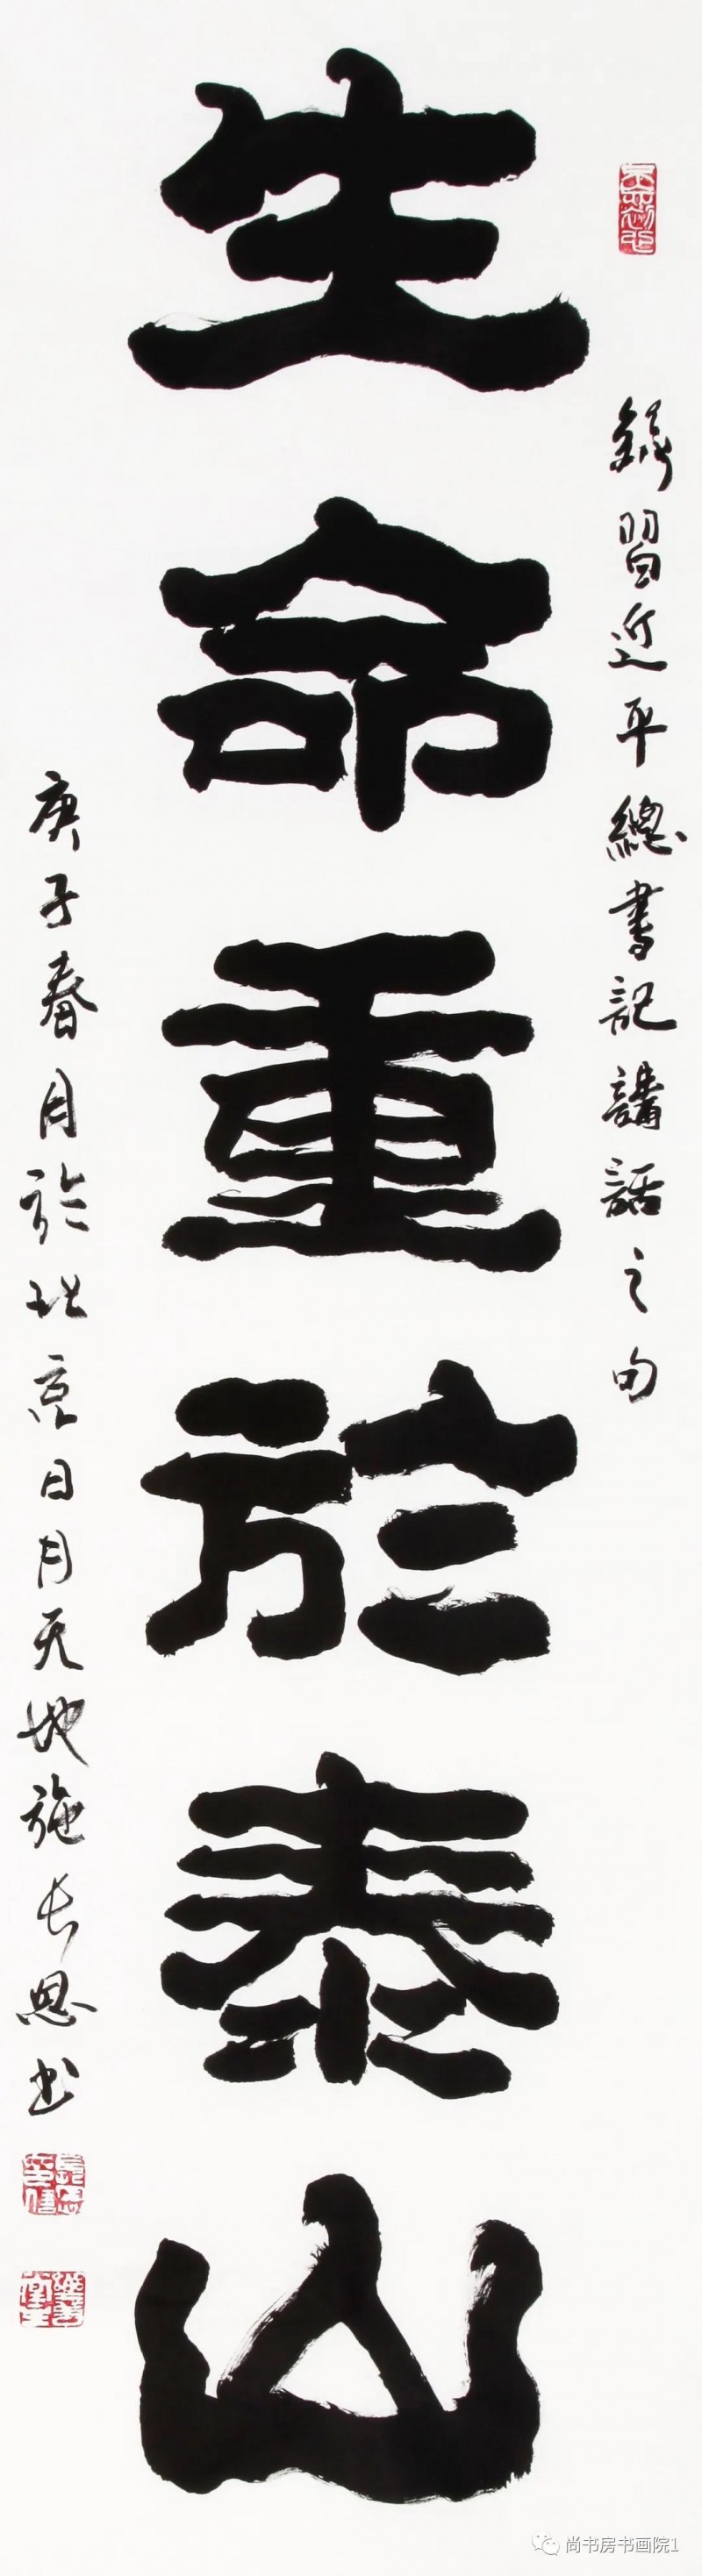 錄習近平總書記講話之句
生命重於泰山
庚子春月於北京日月天地施長恩书
尚书房书画院1